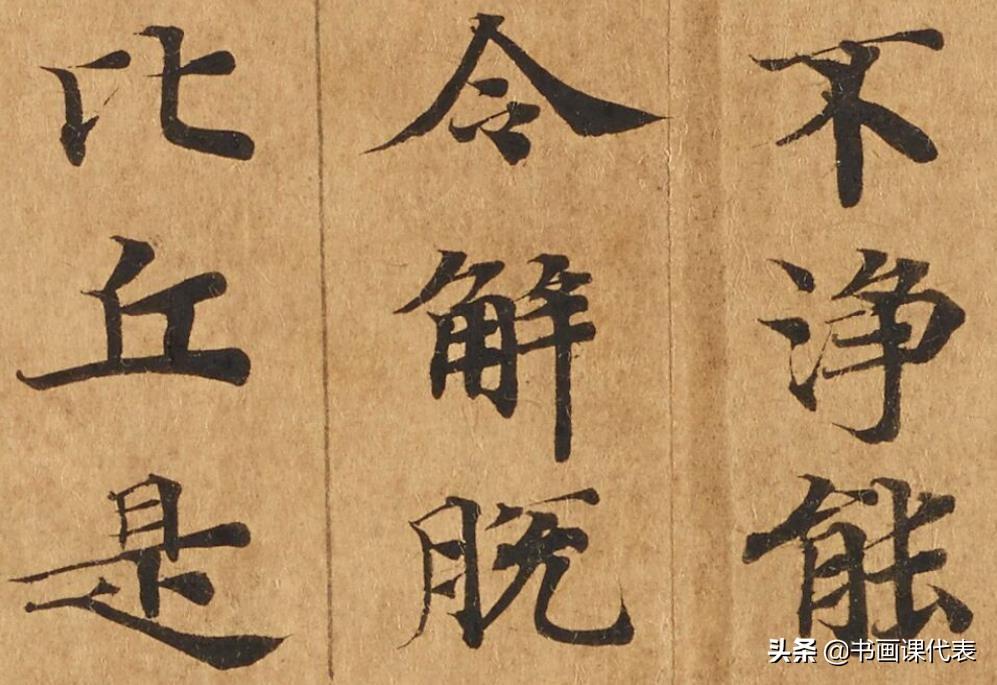 不淨能
令解脫
比丘是
头条 @书画课代表